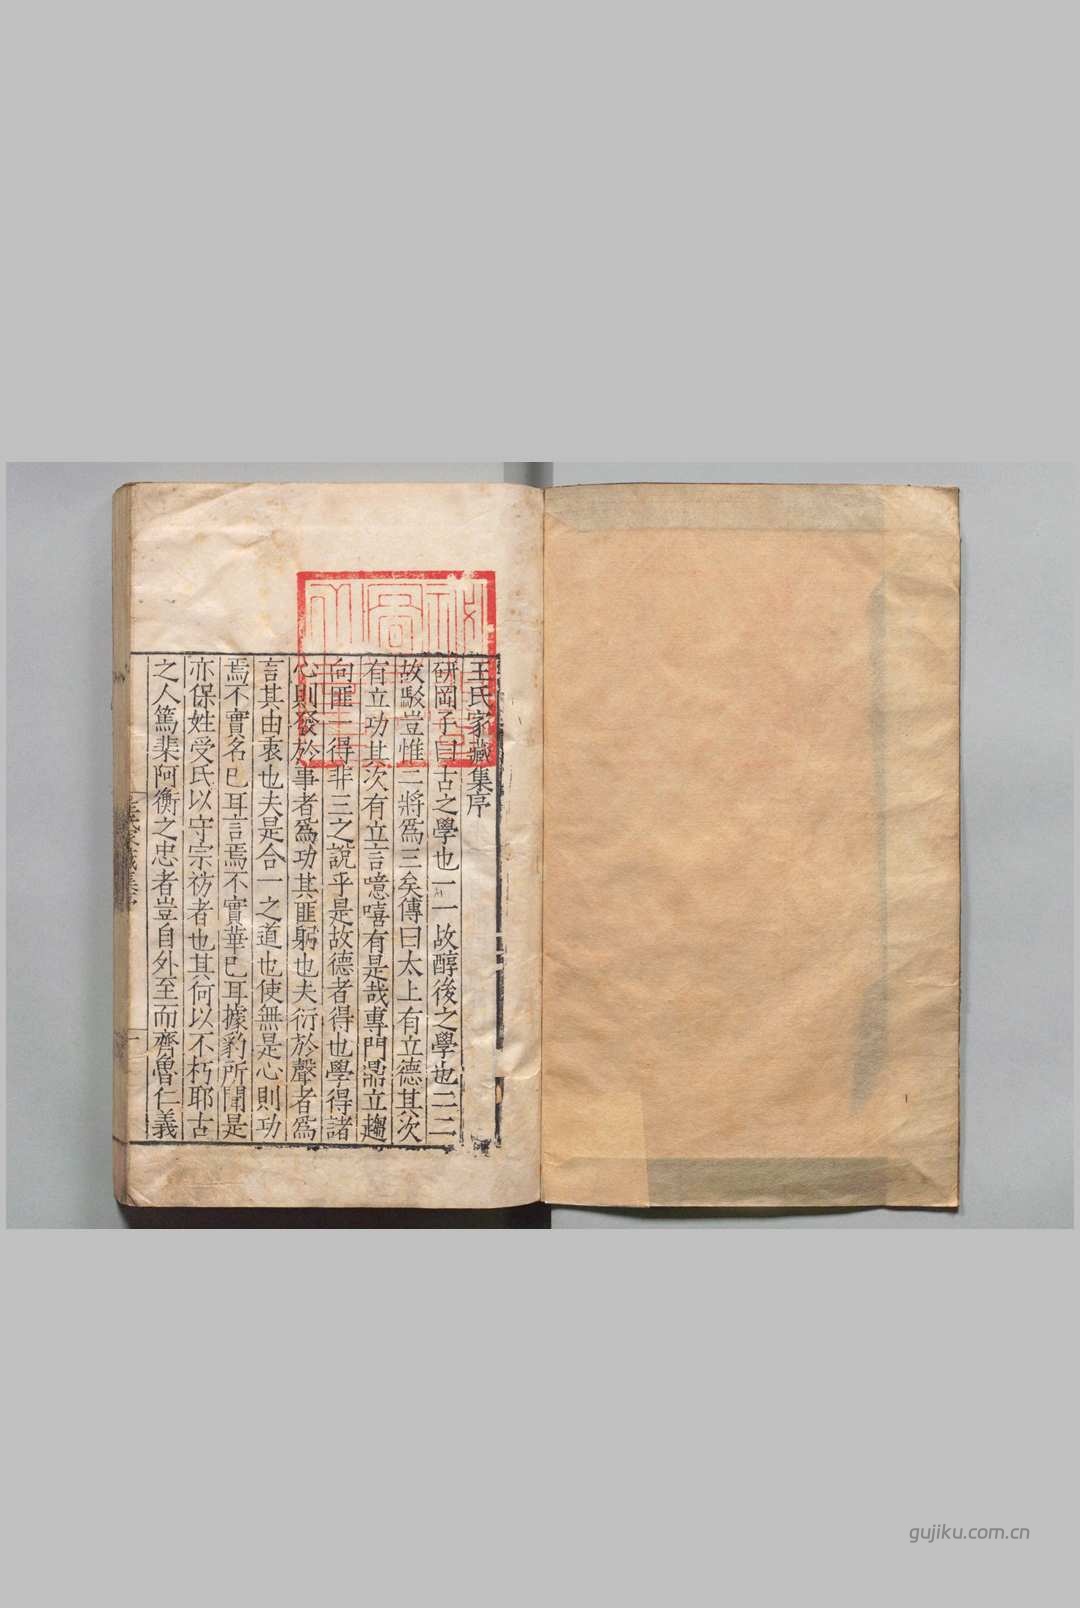 王氏家藏集序
研岡子曰古之學也一一故醇後之學也二二
故駁豈惟二將爲三矣傳曰太上有立德其次
有立功其次有立言噫嘻有是哉專門鼎立趨
向匪一得非三之説乎是故德者得也學得諸
心則發於事者爲功其匪躬也夫衍於聲者爲
言其由衷也夫是合一之道也使無是心則功
焉不實名巳耳言焉不實華巳耳據豹所聞是
亦保姓受氏以守宗祊者也其何以不朽耶古
之人篤棐阿衡之忠者豈自外至而齊魯仁義
gujiku.com.cn